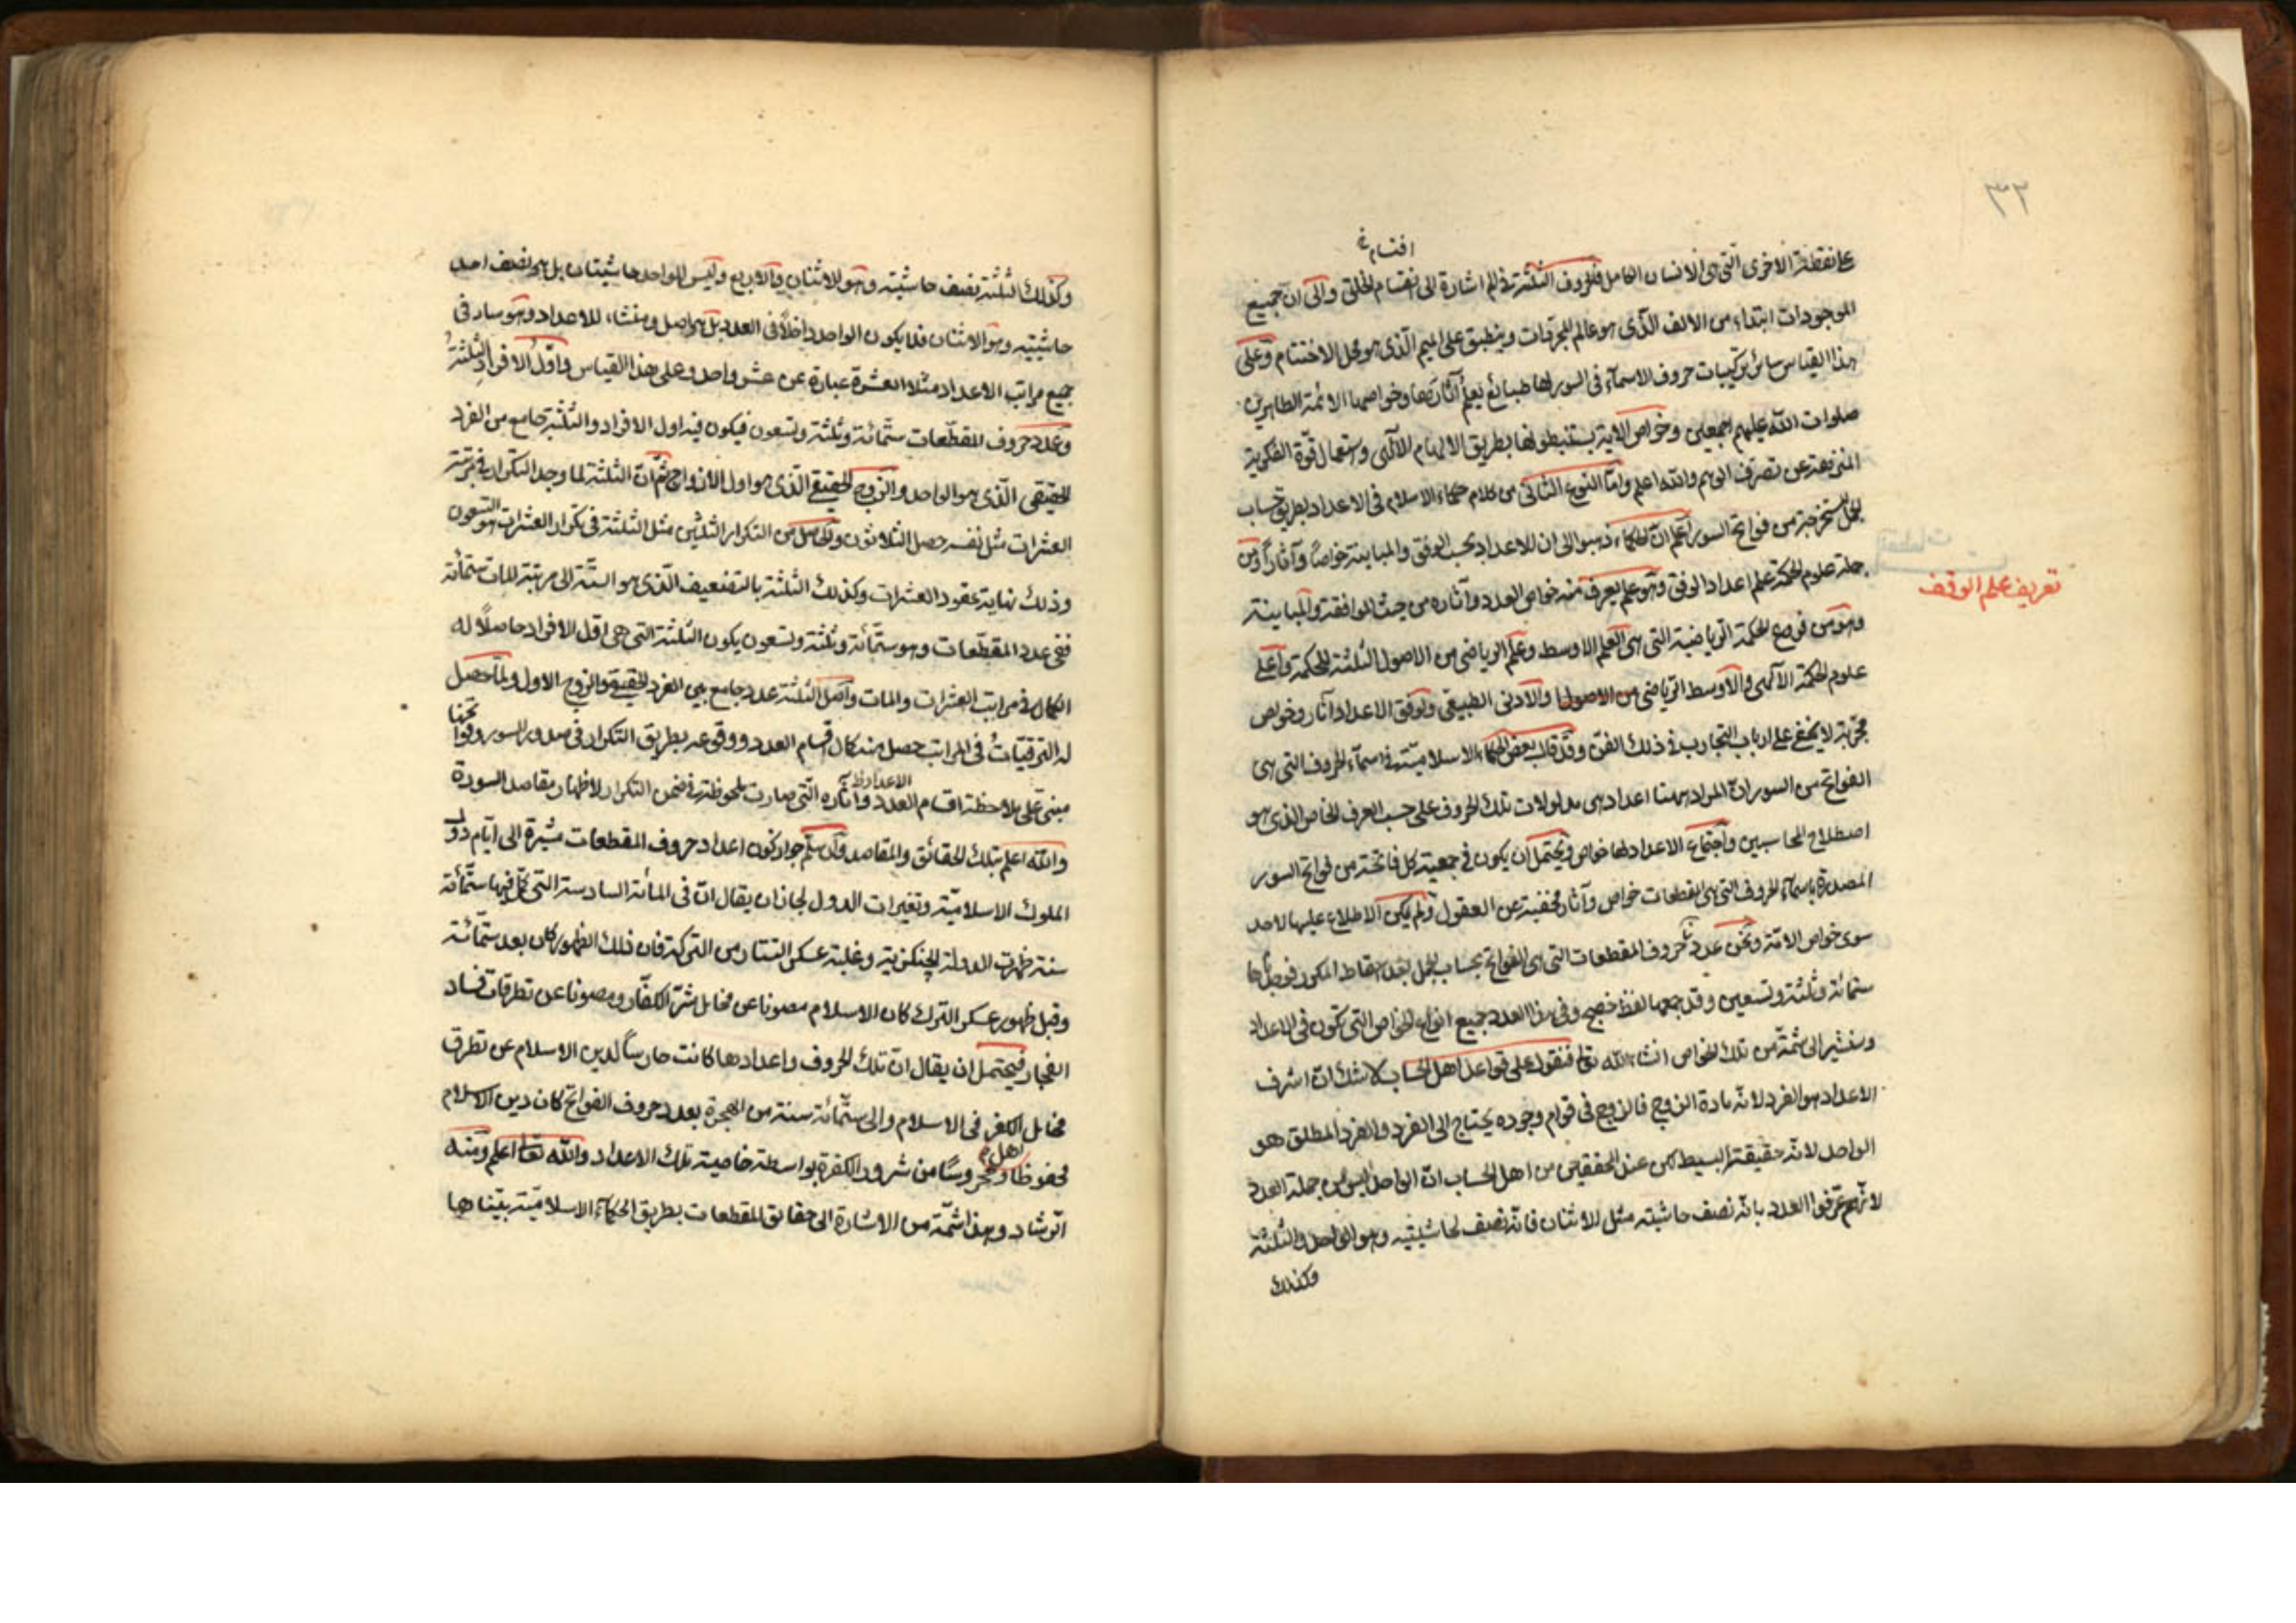 ٣٢
اقسام خ
على نقطة الاخرى التى هى الانسان الكامل فالحروف الثلثة فى الم اشارة الى انقسام الخلق والى ان جميع
الموجودات ابتداء من الالف الذى هو عالم المجردات وينطبق على الميم الذى هو محل الاختتام وعلى
هذا القياس سائر تركيبات حروف الاسماء فى السور لها طبائع يعلم آثارها وخواصها الائمة الطاهرين
صلوات الله عليهم اجمعين وخواص الاية يستنبطونها بطريق الالهام الالهى واستعمال قوة الفكرية
المنزهة عن تصرف الوهم والله اعلم واما النوع الثانى من كلام حكماء الاسلام فى الاعداد بطريق حساب
الجمل المستخرجة من فواتح السور اعلم ان الحكماء ذهبوا الى ان للاعداد بحسب الوفق والمباينة خواصا وآثارا ومن
جملة علوم الحكمة علم اعداد الوفق وهو علم يعرف منه خواص العدد وآثاره من حيث الموافقة والمباينة
تعريف علم الوقف
وهو من فروع الحكمة الرياضية التى هى العلم الاوسط وعلم الرياضى من الاصول الثلثة للحكمة واعلى
علوم الحكمة الالهى والاوسط الرياضى من الاصول والادنى الطبيعى ولوفق الاعداد آثار وخواص
مجربة لا يخفى على ارباب التجارب فى ذلك الفن وقد قال بعض الحكماء الاسلامية فى اسماء الحروف التى هى
الفواتح من السور ان المراد ههنا اعداد هى مدلولات تلك الحروف على حسب العرف الخاص الذى هو
اصطلاح المحاسبين واجتماع الاعداد لها خواص ويحتمل ان يكون فى جمعية كل فاتحة من فواتح السور
المصدرة باسماء الحروف التى هى المقطعات خواص وآثار مخفية عن العقول ولم يكن الاطلاع عليها لاحد
سوى خواص الامة ونحن عددنا حروف المقطعات التى هى الفواتح بحساب الجمل بعد اسقاط المكرر فوجدناها
ستمائة وثلثة وتسعين وقد جمعها لفظ خصج وفى هذا العدد جميع انواع الخواص التى تكون فى الاعداد
وسنشير الى شمة من تلك الخواص انشاء الله تعالى فنقول على قواعد اهل الحساب لا شك ان اشرف
الاعداد هو الفرد لانه مادة الزوج فالزوج فى قوام وجوده يحتاج الى الفرد والفرد المطلق هو
الواحد لانه حقيقة البسيط لكن عند المحققين من اهل الحساب ان الواحد ليس من جملة العدد
لانهم عرفوا العدد بانه نصف حاشيته مثل الاثنان فانه نصف لحاشيتيه وهو الواحد والثلثة
وكذلك
وكذلك الثلثة نصف حاشيته وهو الاثنان والاربع وليس للواحد حاشيتان بل هو نصف احد
حاشيتيه وهو الاثنان فلا يكون الواحد داخلا فى العدد بل هو اصل ومنشاء للاعداد وهو سار فى
جميع مراتب الاعداد مثلا العشرة عبارة عن عشر واحد وعلى هذا القياس واول الافراد الثلثة
وعدد حروف المقطعات ستمائة وثلثة وتسعون فيكون فيه اول الافراد والثلثة جامع من الفرد
الحقيقى الذى هو الواحد والزوج الحقيقى الذى هو اول الازواج ثم ان الثلثة لما وجد التكرار فى مرتبة
العشرات مثل نفسه حصل الثلاثون والحاصل من التكرار الثلثين مثل الثلثة فى تكرار العشرات هو التسعون
وذلك نهاية عقود العشرات وكذلك الثلثة بالتضعيف الذى هو الستة الى مرتبة المات ستمائة
ففى عدد المقطعات وهو ستمائة وثلثة وتسعون يكون الثلثة التى هى اقل الافراد حاصلا له
الكمال فى مراتب العشرات والمات واصل الثلثة عدد جامع بين الفرد الحقيقى والزوج الاول ولما حصل
له الترقيات فى المراتب حصل منه كمال اقسام العدد ووقوعه بطريق التكرار فى صدور السور وفواتحنا
مبنى على ملاحظة اقسام العدد وآثاره التى صارت ملحوظة فى ضمن التكرار لاظهار مقاصد السورة
الاعداد ظ
والله اعلم بتلك الحقائق والمقاصد وان سلم جواز كون اعداد حروف المقطعات مشيرة الى ايام دول
الملوك الاسلامية وتغيرات الدول لجاز ان يقال ان فى المائة السادسة التى كل فيها ستمائة
سنة ظهرت الدولة الچنكزية وغلبة عسكر التتار من التركة فان ذلك الظهور كان بعد ستمائة
وقبل ظهور عسكر الترك كان الاسلام مصونا عن مخايل شر الكفار ومصونا عن تطرقات فساد
الفجار فيحتمل ان يقال ان تلك الحروف واعدادها كانت حارسا لدين الاسلام عن تطرق
مخايل الكفر فى الاسلام والى ستمائة سنة من الهجرة بعدد حروف الفواتح كان دين الاسلام
اهل
محفوظا ومحروسا من شرور الكفرة بواسطة خاصية تلك الاعداد والله تعالى اعلم ومنه
الرشاد وهذا شمة من الاشارة الى حقائق المقطعات بطريق الحكماء الاسلامية بيناها